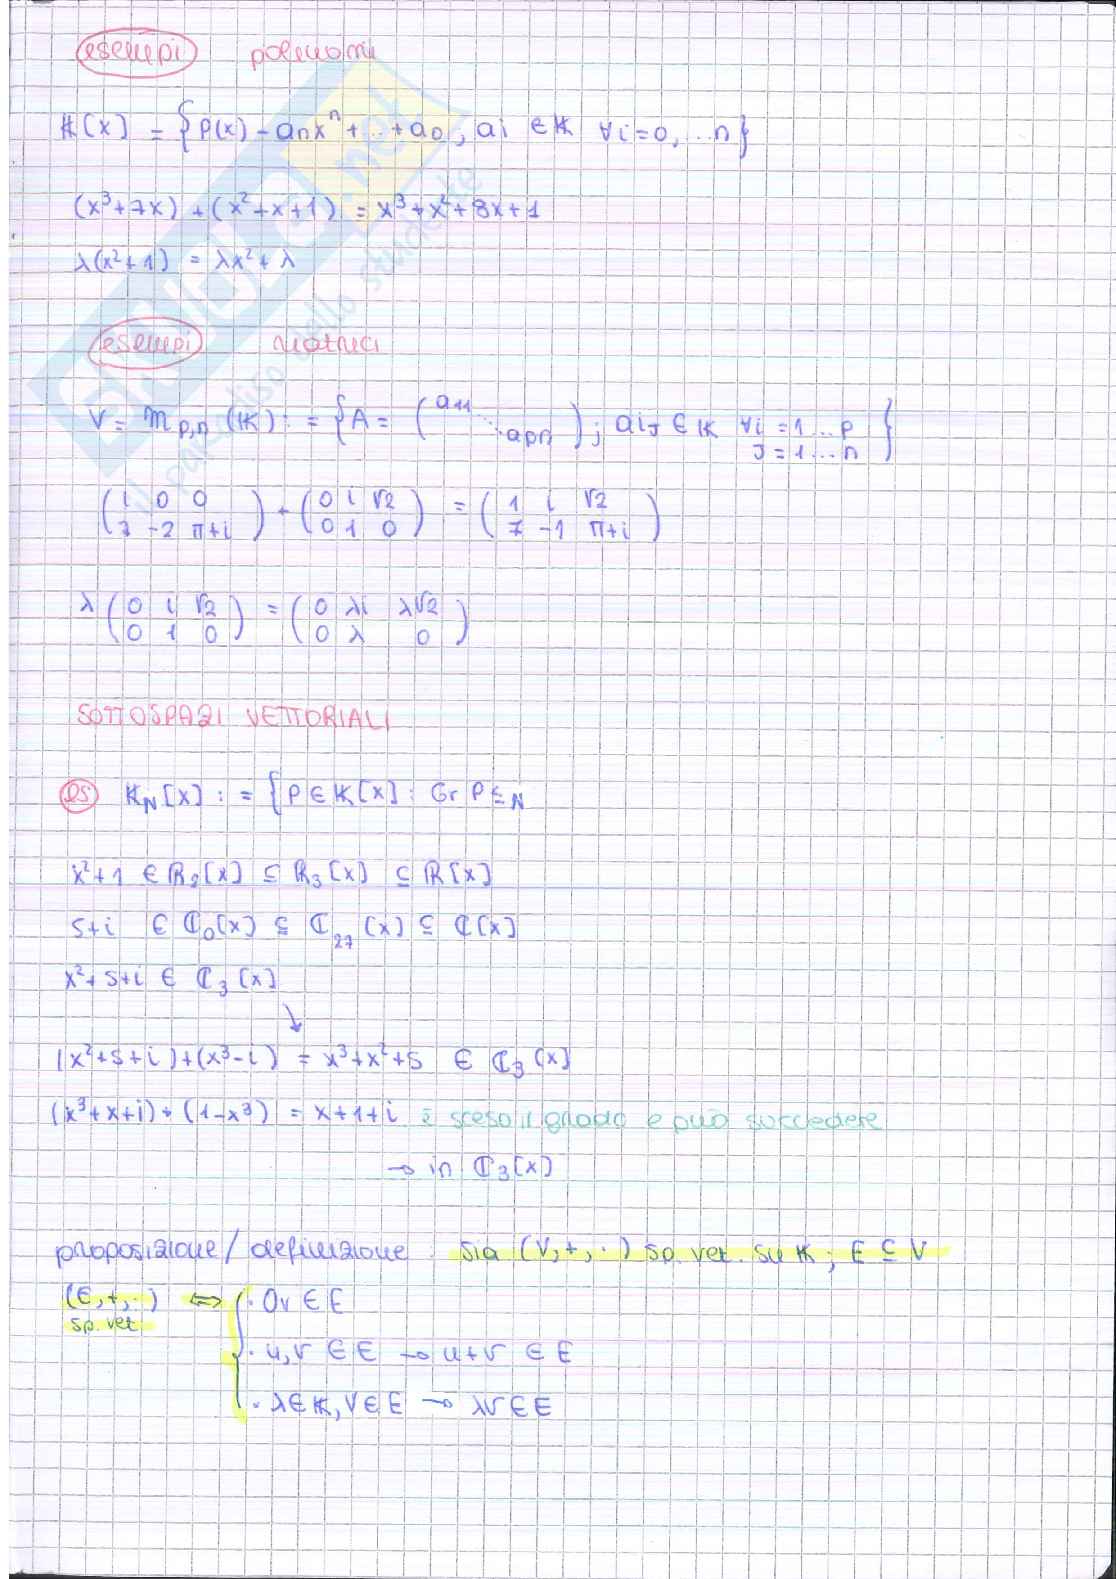 esempi polinomi
𝕂[x] = {P(x) = anxⁿ + ... + a0, ai ∈ 𝕂 ∀i=0,...n}
(x³+7x) + (x²+x+1) = x³+x²+8x+1
λ(x²+1) = λx²+λ
esempi matrici
V = m p,n (𝕂) := {A = (a11 ... apn); aij ∈ 𝕂 ∀i=1...p
J=1...n}
(1 0 0) + (0 i √2) = (1 i √2)
(7 -2 π+i) (0 1 0) (7 -1 π+i)
λ(0 i √2) = (0 λi λ√2)
(0 1 0) (0 λ 0)
SOTTOSPAZI VETTORIALI
es 𝕂N[x] := {P ∈ 𝕂[x] : Gr P ≤ N
x²+1 ∈ ℝ2[x] ⊆ ℝ3[x] ⊆ ℝ[x]
5+i ∈ ℂ0[x] ⊆ ℂ27[x] ⊆ ℂ[x]
x²+5+i ∈ ℂ3[x]
↘
(x²+5+i)+(x³-i) = x³+x²+5 ∈ ℂ3[x]
(x³+x+i)+(1-x³) = x+1+i è sceso il grado e può succedere
→ in ℂ3[x]
proposizione/definizione : sia (V,+,·) sp. vet. su 𝕂; E ⊆ V
(E,+,·) ⇔ { · 0v ∈ E
sp. vet
· u,v ∈ E → u+v ∈ E
· λ∈𝕂, v∈E → λv ∈ E
skuola.net
il paradiso dello studente